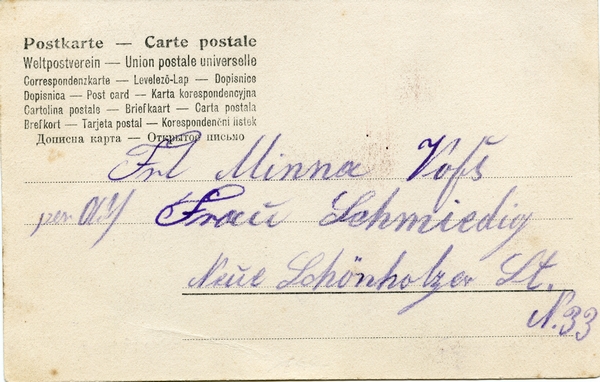 Postkarte — Carte postale
Weltpostverein — Union postale universelle
Correspondenzkarte — Levelező-Lap — Dopisnice
Dopisnica — Post card — Karta korespondencyjna
Cartolina postale — Briefkaart — Carta postala
Brefkort — Tarjeta postal — Korespondenční lístek
Дописна карта — Открытое письмо
Frl Minna Voſs
per Frau Schmiedig
Neue Schönholzer St.
N. 33